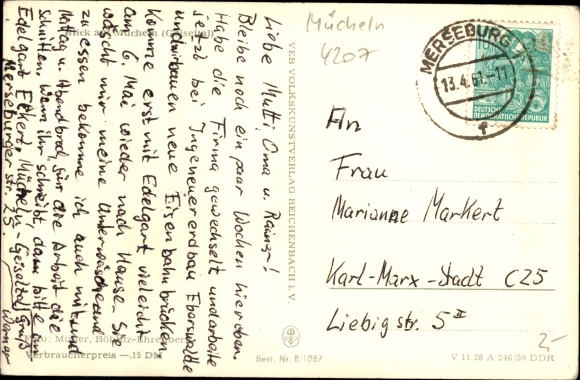 Mücheln
4207
MERSEBURG
13.4.61.-11
f
10
DEUTSCHE
DEMOKRATISCHE REPUBLIK
Blick auf Mücheln (Geiseltal)
Liebe Mutti, Oma u. Rainer!
Bleibe noch ein paar Wochen hier oben
Habe die Firma gewechselt und arbeite
jetzt bei Ingeneuererdbau Eberswalde
und wir bauen neue Eisenbahnbrücken
Komme erst mit Edelgart vieleicht
am 6. Mai wieder nach Hause. Sie
wäscht mir meine Unterwäsche und
zu essen bekomme ich auch mit und
Mittag u. Abendbrot, für die Arbeit die
Schnitten. Wenn ihr schreibt, dann bitte an
Edelgart Eckert, Mücheln-Geiseltal
Merseburger str. 25
Gruß
Werner
VEB VOLKSKUNSTVERLAG REICHENBACH I. V.
An
Frau
Marianne Markert
Karl-Marx-Stadt C25
Liebigstr. 5 II
Foto: Müller, Böhlitz-Ehrenberg
Verbraucherpreis —.15 DM
Best. Nr. 8/1087
V 11 28 A 246/59 DDR
2,-